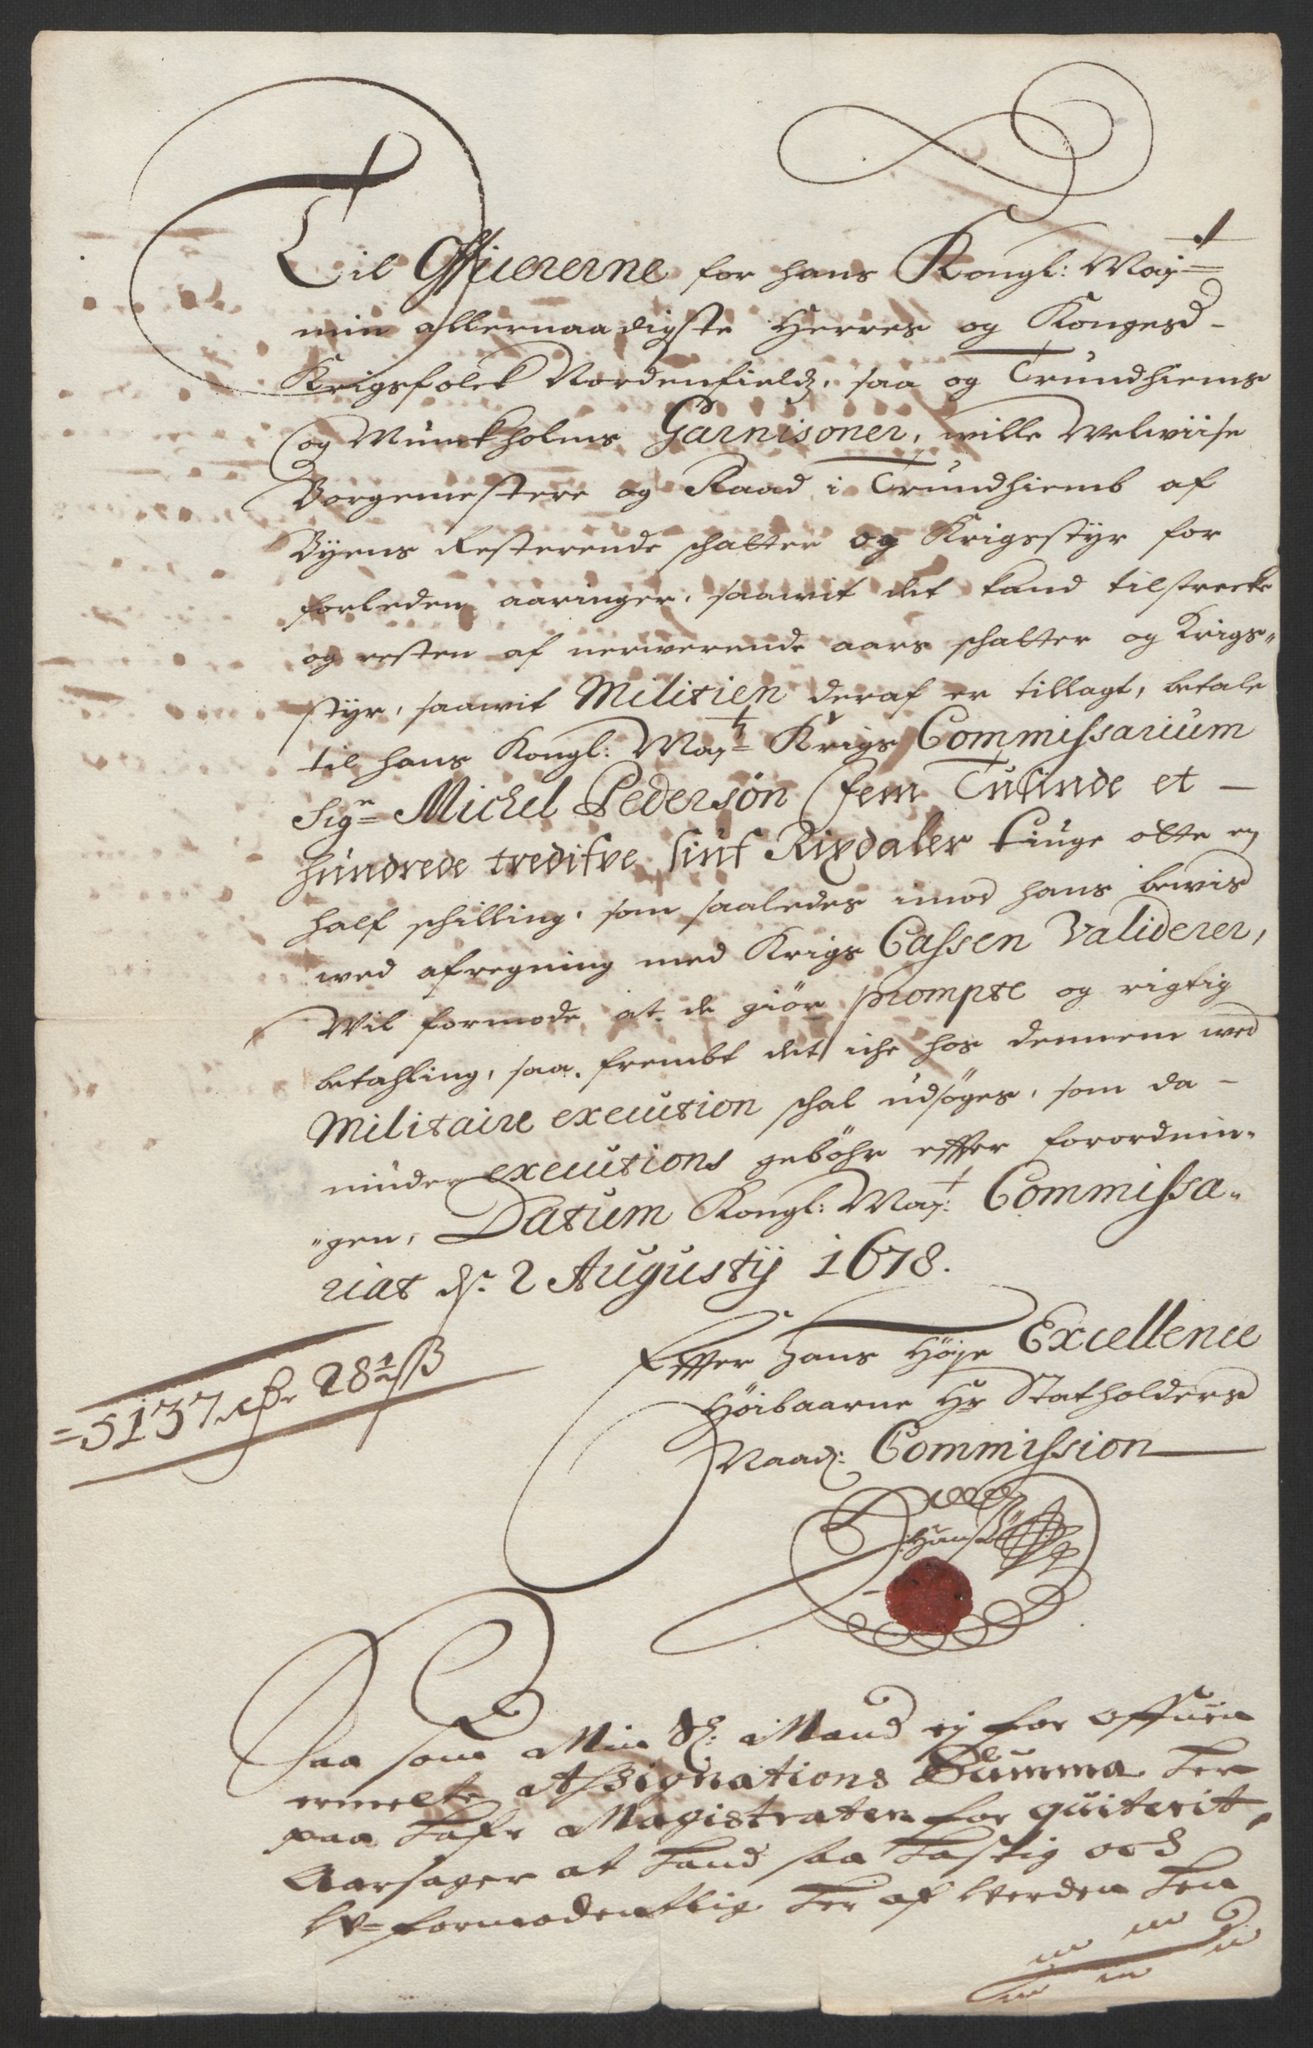 Til Officererne for hans Kongl: Mayt
min allernaadigste Herres og Konges
Krigsfolck Nordenfields, saa og Trundhiems
og Munckholms Garnisoner, wille Welwiise
Borgemestere og Raad i Trundhiemb af
Byens Resterende schatter og Krigsstyr for
forleden aaringer, saawit det kand tilstrecke
og resten af nerwerende aars schatter og Krigs-
styr, saawit Militien deraf er tillagt, betale
til hans Kongl: Mayt Krigs Commissarium
Sigr Michel Pedersøn Fem Tusinde et
hundrede tredifve siuf Rixdaler tiuge otte en
half schilling, som saaledes imod hans bewis
wed afregning med Krigs Cassen Validerer,
Wil formode at de giør prompte og rigtig
betahling, saa frembt det iche hos dennem wed
Militaire execution schal udsøges, som da
minder executions gebøhr effter forordnin-
gen, Datum Kongl: Mayt: Commissa-
riat ds. 2 Augustij 1678.
= 5137 rdr 28½ ß
Effter hans Høje Excellence
Høibaarne Hr Statholders
Naads: Commission
Hans
Saa som Min Sl: Mand ej for offuen
ermelte Assignations Summa her
paa hafr Magistraten for quiterit,
Aarsager at hand saa hastig och
W=formodentlig her af Werden hen